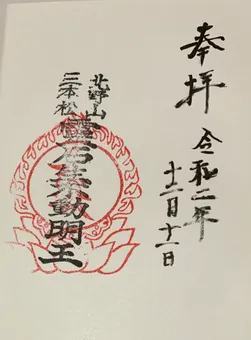 奉拝
令和二年
十二月十一日
北野山
三本松
不動明王